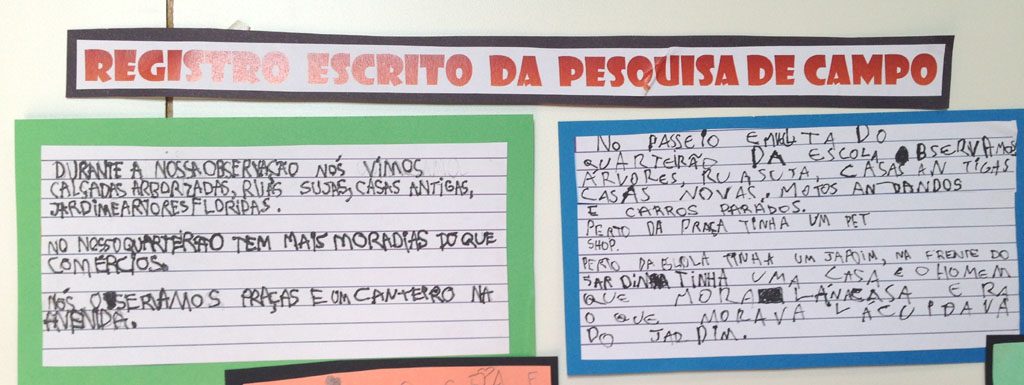 REGISTRO ESCRITO DA PESQUISA DE CAMPO
DURANTE A NOSSA OBSERVAÇÃO NÓS VIMOS
CALÇADAS ARBORIZADAS, RUAS SUJAS, CASAS ANTIGAS,
JARDIM E ARVORES FLORIDAS.
NO NOSSO QUARTEIRÃO TEM MAIS MORADIAS DO QUE
COMÉRCIOS.
NÓS OBSERVAMOS PRAÇAS E UM CANTEIRO NA
AVENIDA.
NO PASSEIO EM VOLTA DO
QUARTEIRÃO DA ESCOLA OBSERVAMOS
ÁRVORES, RUA SUJA, CASAS AN TIGAS
CASAS NOVAS. MOTOS AN DANDOS
E CARROS PARADOS.
PERTO DA PRAÇA TINHA UM PET
SHOP.
PERTO DA ESCOLA TINHA UM JARDIM, NA FRENTE DO
JARDIN TINHA UMA CASA E O HOMEM
QUE MORA LÁ NA CASA E RA
O QUE MORAVA LÁ CUIDAVA
DO JAD DIM.